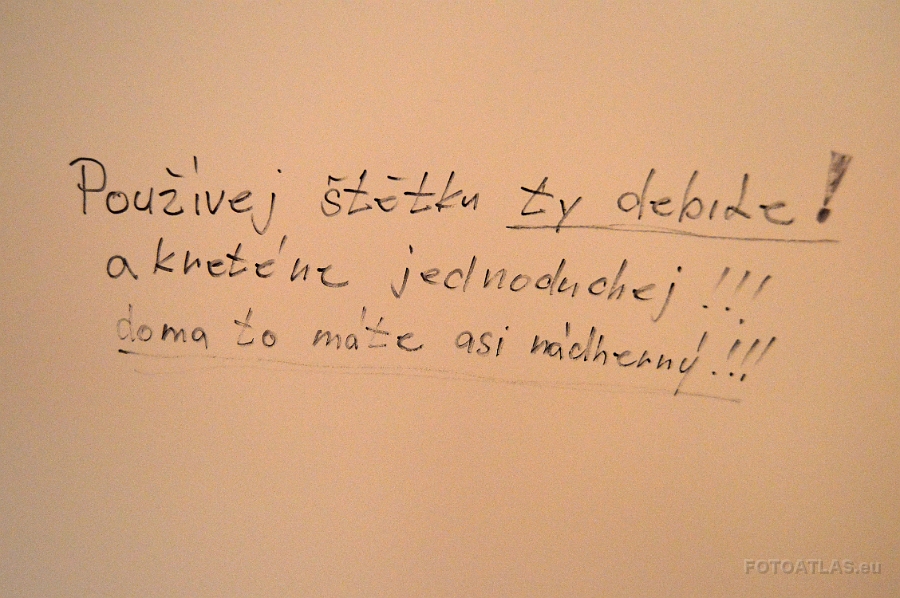 Používej štětku ty debile!
a kreténe jednoduchej!!!
doma to máte asi nádherný!!!
FOTOATLAS.eu